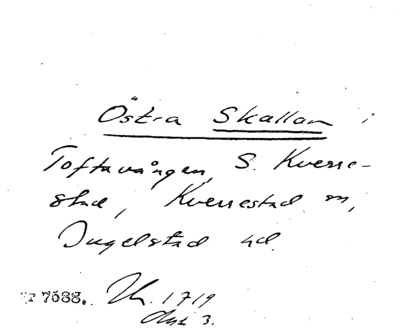 Östra Skallan i
Toftavången, S. Kverre-
stad, Kverrestad sn,
Ingelstad hd.
7588. Lh. 1719
Akt 3.